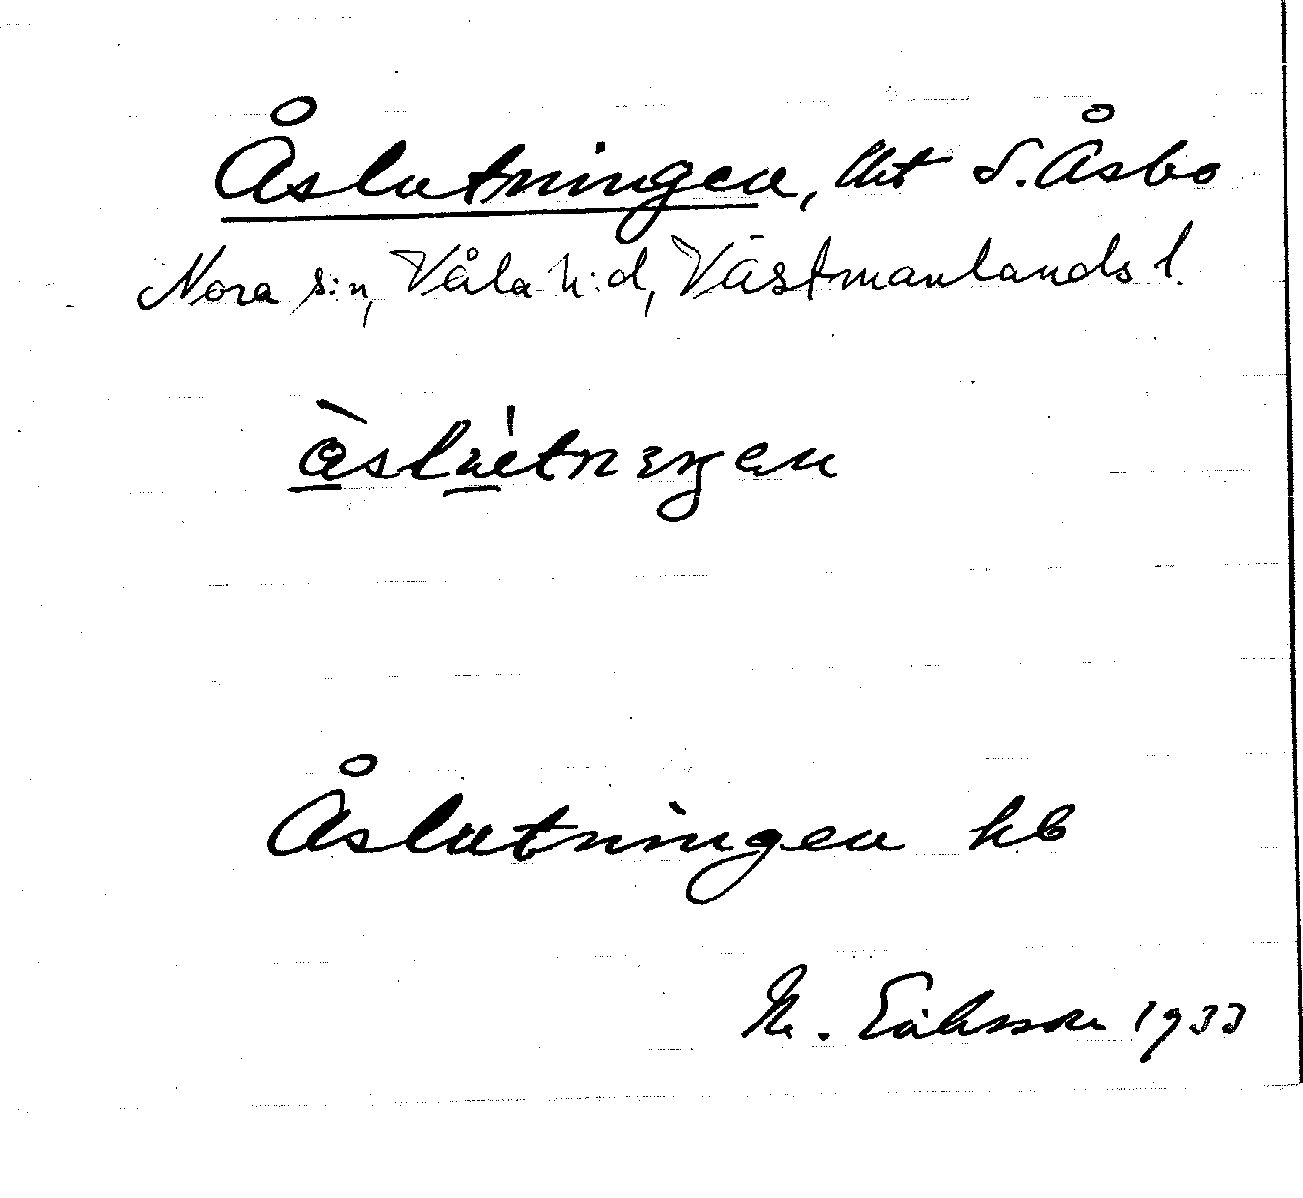 Åslutningen, lht S. Åsbo
Nora s:n, Våla h:d, Västmanlands l.
Åslutningen hb
M. Eriksson 1933